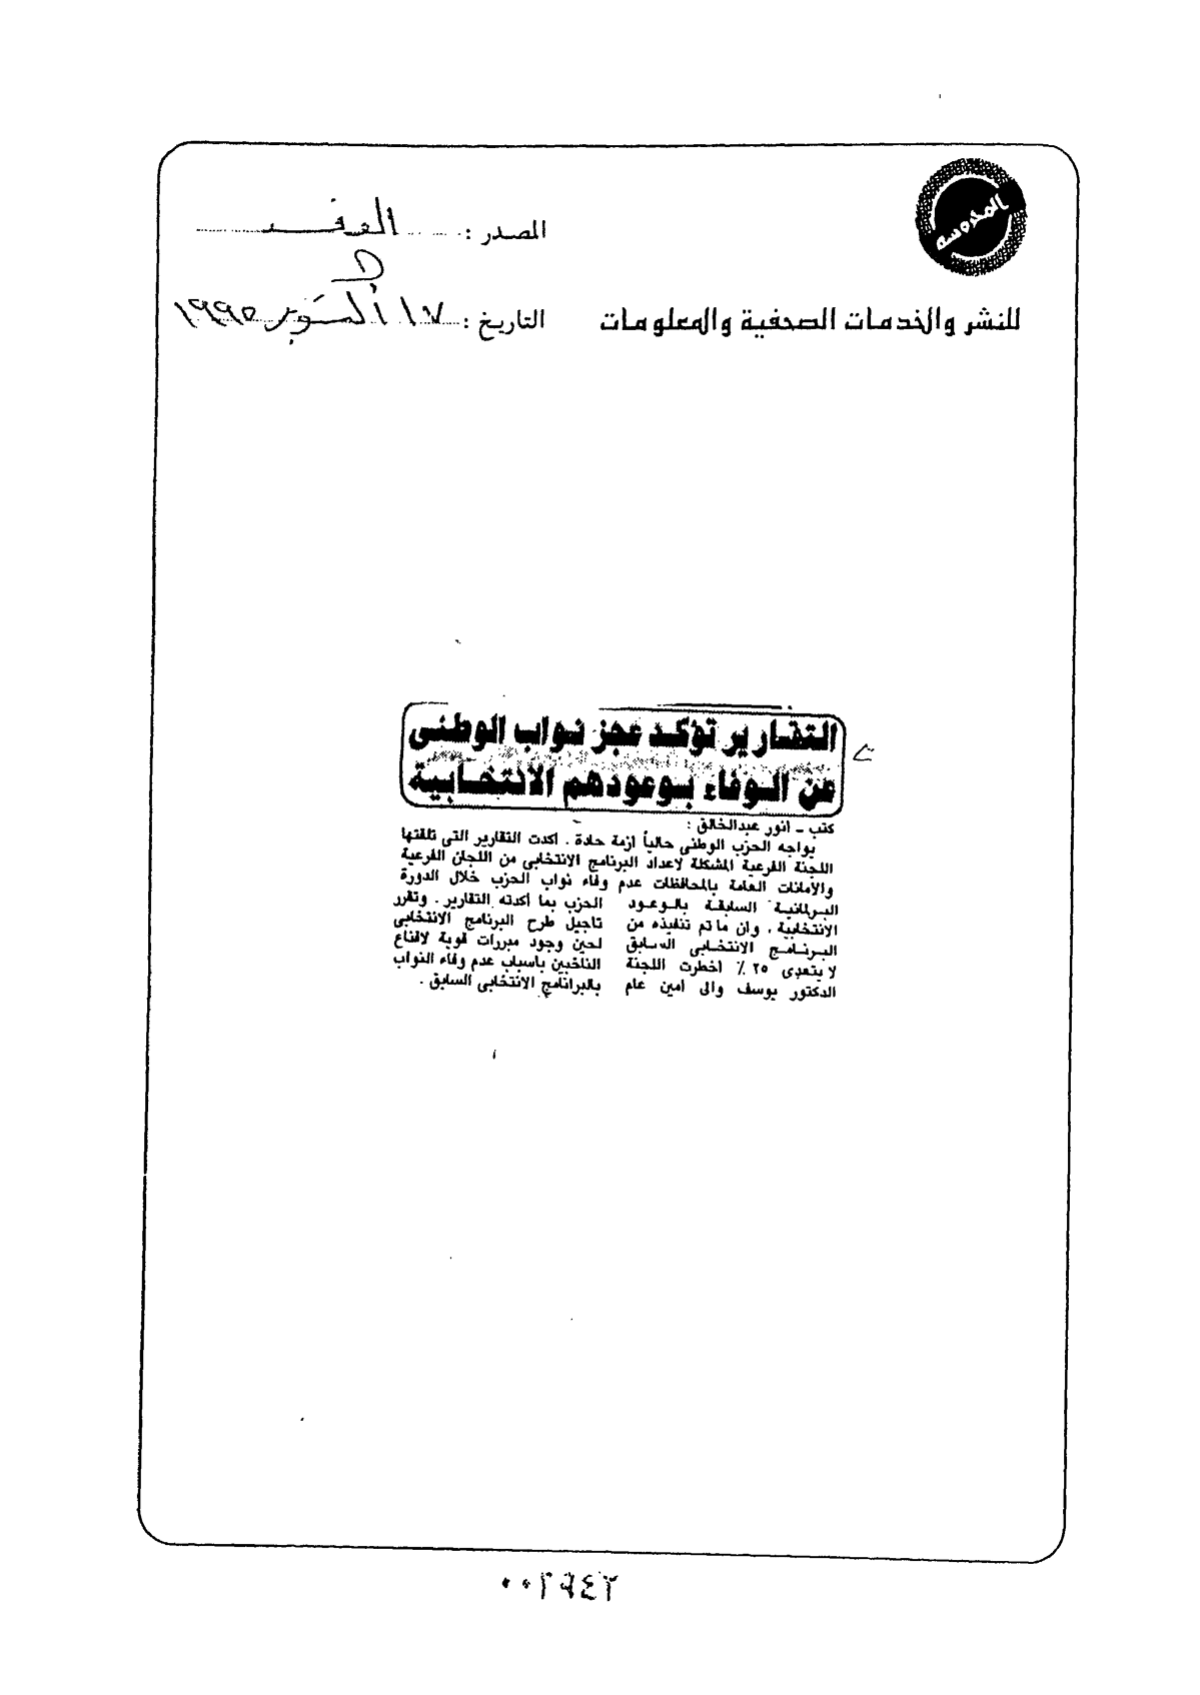 المحروسه
المصدر : الوفد
للنشر والخدمات الصحفية والمعلومات
التاريخ : ١٧ أكتوبر ١٩٩٥
التقارير تؤكد عجز نواب الوطنى
عن الوفاء بوعودهم الانتخابية
كتب - انور عبدالخالق :
يواجه الحزب الوطنى حالياً ازمة حادة . اكدت التقارير التى تلقتها
اللجنة الفرعية المشكلة لاعداد البرنامج الانتخابى من اللجان الفرعية
والأمانات العامة بالمحافظات عدم وفاء نواب الحزب خلال الدورة
البرلمانية السابقة بالوعود
الانتخابية ، وان ماتم تنفيذه من
البرنامج الانتخابى السابق
لا يتعدى ٢٥ ٪ اخطرت اللجنة
الدكتور يوسف والى امين عام
الحزب بما أكدته التقارير . وتقرر
تاجيل طرح البرنامج الانتخابى
لحين وجود مبررات قوية لاقناع
الناخبين باسباب عدم وفاء النواب
بالبرانامج الانتخابى السابق .